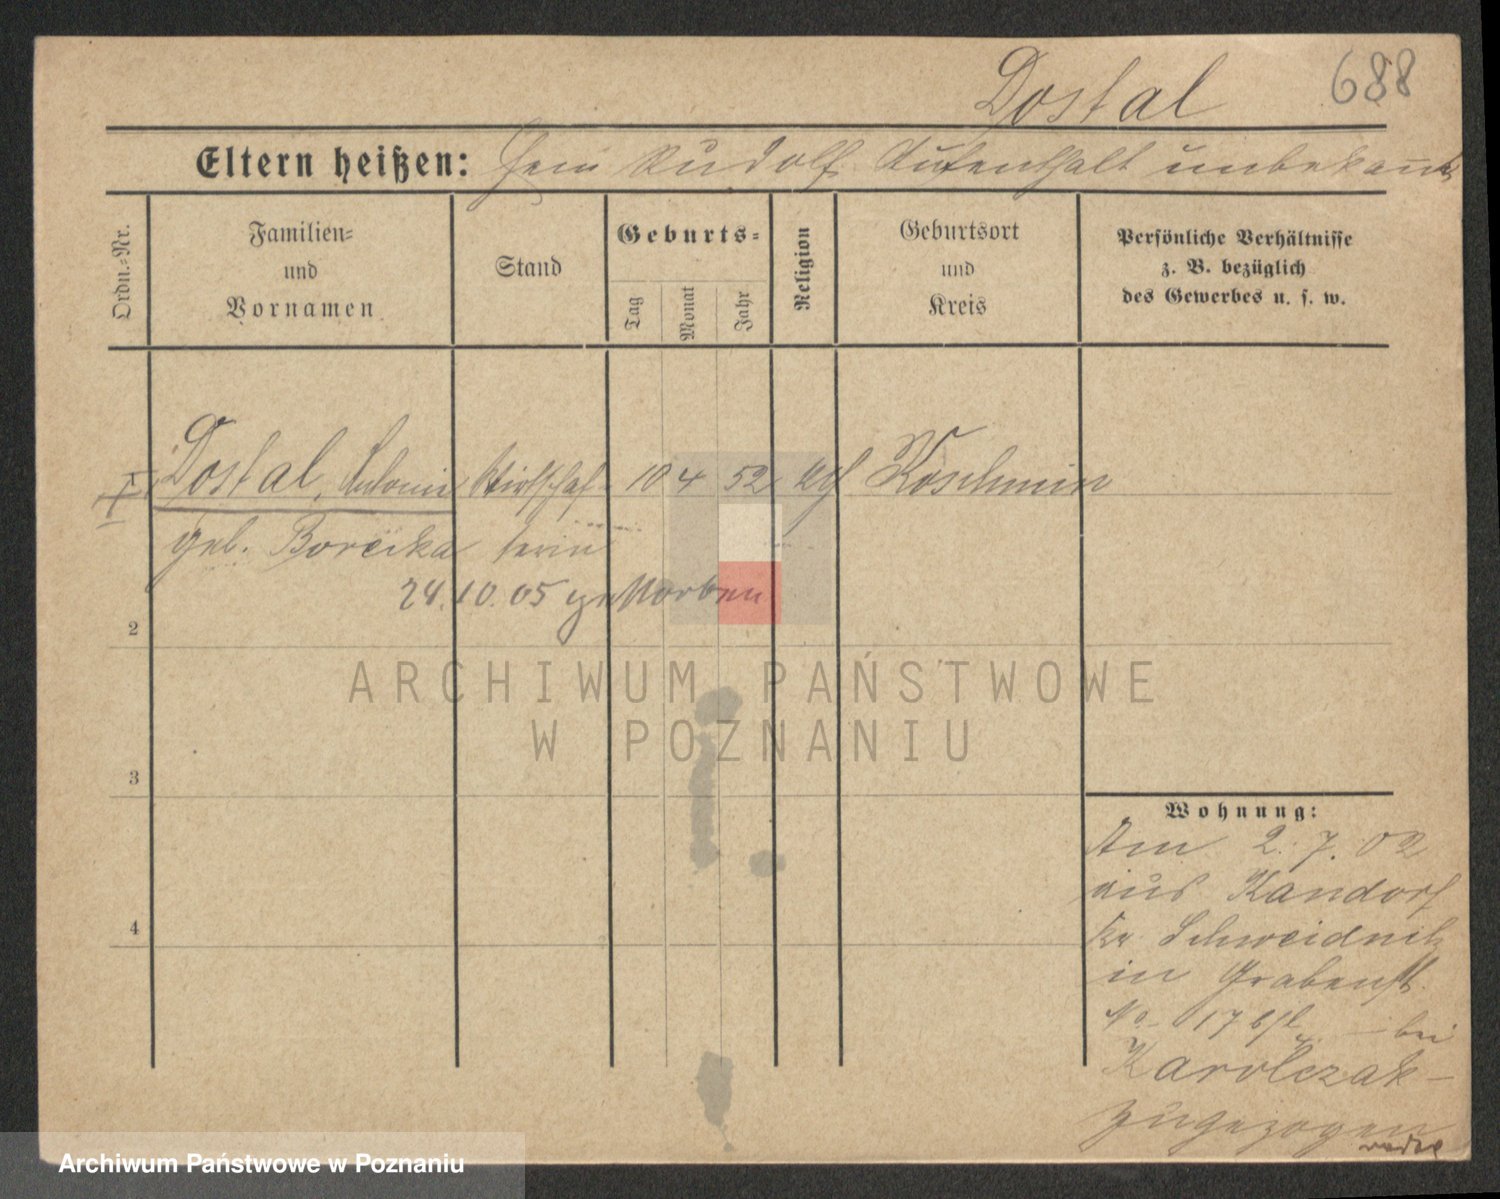 688
Dostal
Eltern heißen: Rudolf Aufenhalt unbekannt
Ordn.-Nr.
Familien-
und
Vornamen
Stand
Geburts-
Tag
Monat
Jahr
Religion
Geburtsort
und
Kreis
Persönliche Verhältnisse
z. B. bezüglich
des Gewerbes u. s. w.
I Dostal, Antonie Wirthschaf- 10 4 52 kth Koschmin
geb. Boreika terin
24.10.05 gestorben
2
3
4
Wohnung:
Am 2. 7. 02
aus Kandorf
Kr Schweidnitz
in Grabenstr.
No 17 bei
Karolczak
zugezogen
ARCHIWUM PAŃSTWOWE
W POZNANIU
Archiwum Państwowe w Poznaniu